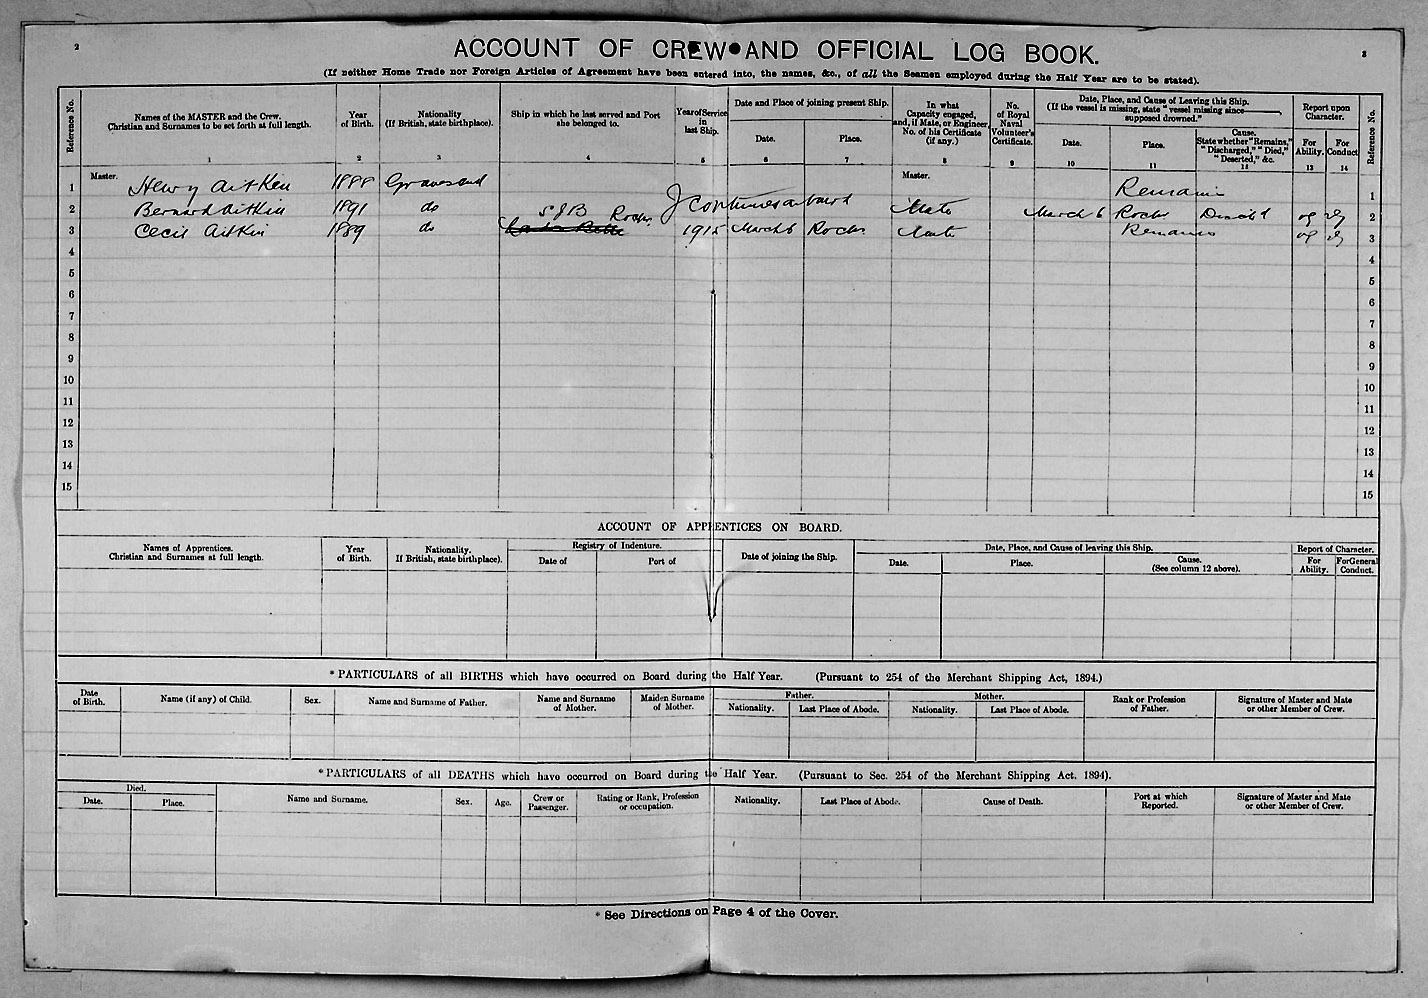 2
3
ACCOUNT OF CREW AND OFFICIAL LOG BOOK.
(If neither Home Trade nor Foreign Articles of Agreement have been entered into, the names, &c., of all the Seamen employed during the Half Year are to be stated).
Reference No.
Names of the MASTER and the Crew. Christian and Surnames to be set forth at full length.
Year of Birth.
Nationality (If British, state birthplace).
Ship in which he last served and Port she belonged to.
Year of Service in last Ship.
Date and Place of joining present Ship.
Date.
Place.
In what Capacity engaged, and, if Mate, or Engineer, No. of his Certificate (if any.)
No. of Royal Naval Volunteer's Certificate.
Date, Place, and Cause of Leaving this Ship. (If the vessel is missing, state "vessel missing since———, supposed drowned."
Date.
Place.
Cause. State whether "Remains," "Discharged," "Died," "Deserted," &c.
Report upon Character.
For Ability.
For Conduct
Reference No.
1 2 3 4 5 6 7 8 9 10 11 12 13 14
1 Master. Henry Aitken 1888 Gravesend Continues on board Master. Remains 1
2 Bernard Aitkin 1891 do Mate March 6 Roch Disch'd vg vg 2
3 Cecil Aitkin 1889 do S J B Roch 1915 March 6 Roch Mate Remains vg vg 3
4 4
5 5
6 6
7 7
8 8
9 9
10 10
11 11
12 12
13 13
14 14
15 15
ACCOUNT OF APPRENTICES ON BOARD.
Names of Apprentices. Christian and Surnames at full length.
Year of Birth.
Nationality. If British, state birthplace).
Registry of Indenture.
Date of
Port of
Date of joining the Ship.
Date, Place, and Cause of leaving this Ship.
Date.
Place.
Cause. (See column 12 above).
Report of Character.
For Ability.
For General Conduct.
* PARTICULARS of all BIRTHS which have occurred on Board during the Half Year. (Pursuant to 254 of the Merchant Shipping Act, 1894.)
Date of Birth.
Name (if any) of Child.
Sex.
Name and Surname of Father.
Name and Surname of Mother.
Maiden Surname of Mother.
Father.
Nationality.
Last Place of Abode.
Mother.
Nationality.
Last Place of Abode.
Rank or Profession of Father.
Signature of Master and Mate or other Member of Crew.
* PARTICULARS of all DEATHS which have occurred on Board during the Half Year. (Pursuant to Sec. 254 of the Merchant Shipping Act. 1894).
Died.
Date.
Place.
Name and Surname.
Sex.
Age.
Crew or Passenger.
Rating or Rank, Profession or occupation.
Nationality.
Last Place of Abode.
Cause of Death.
Port at which Reported.
Signature of Master and Mate or other Member of Crew.
* See Directions on Page 4 of the Cover.